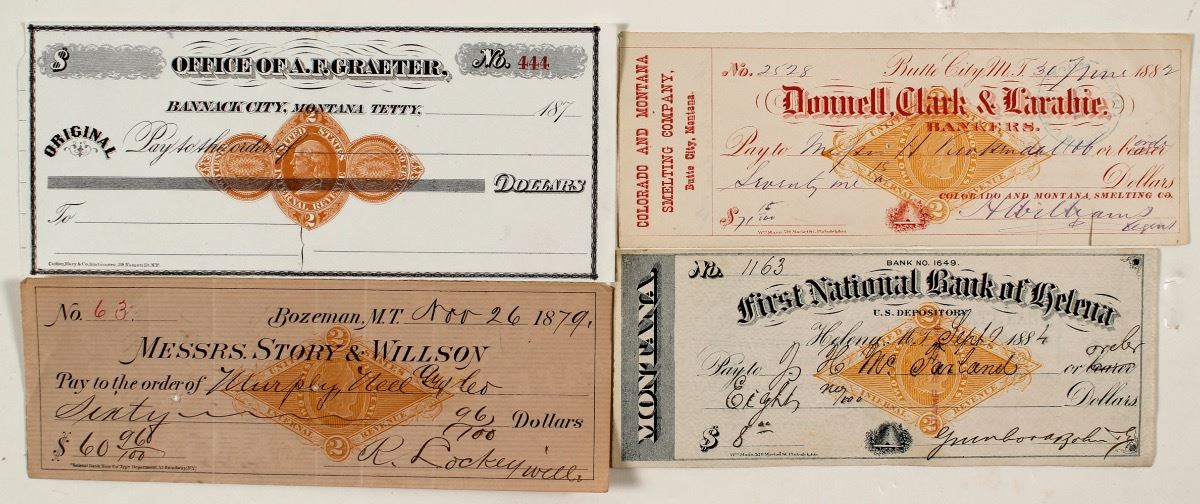 $ OFFICE OF A.F. GRAETER, No. 444
BANNACK CITY, MONTANA TETTY, 187
ORIGINAL
Pay to the order of
UNITED STATES
INTERNAL REVENUE
2
2
DOLLARS
To
COLORADO AND MONTANA
SMELTING COMPANY,
Butte City, Montana.
No. 2528 Butte City M.T. 30 June 1882
Donnell, Clark & Larabie.
BANKERS.
Pay to or bearer
Seventy one 15/100 Dollars
COLORADO AND MONTANA SMELTING CO.
$71 15/100 A Williams
Agent
No. 63. Bozeman, M.T. Nov 26 1879.
MESSRS. STORY & WILLSON
Pay to the order of Murphy, Neel & Co
Sixty 96/100 Dollars
$60 96/100 R. Lockey
2
INTERNAL REVENUE
2
MONTANA
BANK NO. 1649.
No. 1163
First National Bank of Helena
U.S. DEPOSITORY
Helena M.T. Sept 9 1884
order
Pay to J H McFarland or bearer
Eight no/100 Dollars
$8 00